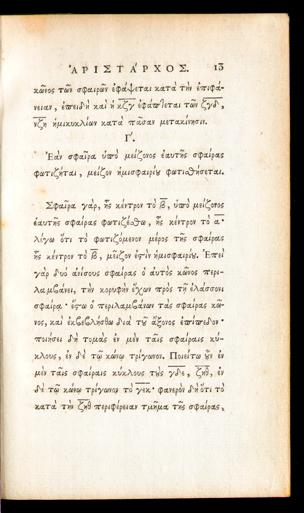 ἈΡΙΣΤΑΡΧΟΣ. 13
κῶνος τῶν σφαιρῶν ἐφάψεται κατὰ τὴν ἐπιφά-
νειαν, ἐπειδὴ καὶ ἡ κζγ ἐφάπτεται τῶν ζγδ,
νζη ἡμικυκλίων κατὰ πᾶσαν μετακίνησιν.
Γ΄.
Ἐὰν σφαῖρα ὑπὸ μείζονος ἑαυτῆς σφαίρας
φωτίζηται, μεῖζον ἡμισφαιρίου φωτισθήσεται.
Σφαῖρα γὰρ, ἧς κέντρον τὸ β, ὑπὸ μείζονος
ἑαυτῆς σφαίρας φωτιζέσθω, ἧς κέντρον τὸ α·
λέγω ὅτι τὸ φωτιζόμενον μέρος τῆς σφαίρας
ἧς κέντρον τὸ β, μεῖζον ἐστὶν ἡμισφαιρίου. Ἐπεὶ
γὰρ δυο ἀνίσους σφαίρας ὁ αὐτὸς κῶνος περι-
λαμβάνει, τὴν κορυφὴν ἔχων πρὸς τῇ ἐλάσσονι
σφαίρᾳ· ἔστω ὁ περιλαμβάνων τὰς σφαίρας κῶ-
νος, καὶ ἐκβεβλήσθω διὰ τοῦ ἄξονος ἐπίπεδον·
ποιήσει δὴ τομὰς ἐν μὲν ταῖς σφαίραις κύ-
κλους, ἐν δὲ τῷ κώνῳ τρίγωνον. Ποιείτω οὖν ἐν
μὲν ταῖς σφαίραις κύκλους τοὺς γδε, ζηθ, ἐν
δὲ τῷ κώνῳ τρίγωνον τὸ γεκ· φανερὸν δὴ ὅτι τὸ
κατὰ τὴν ζηθ περιφέρειαν τμῆμα τῆς σφαίρας,